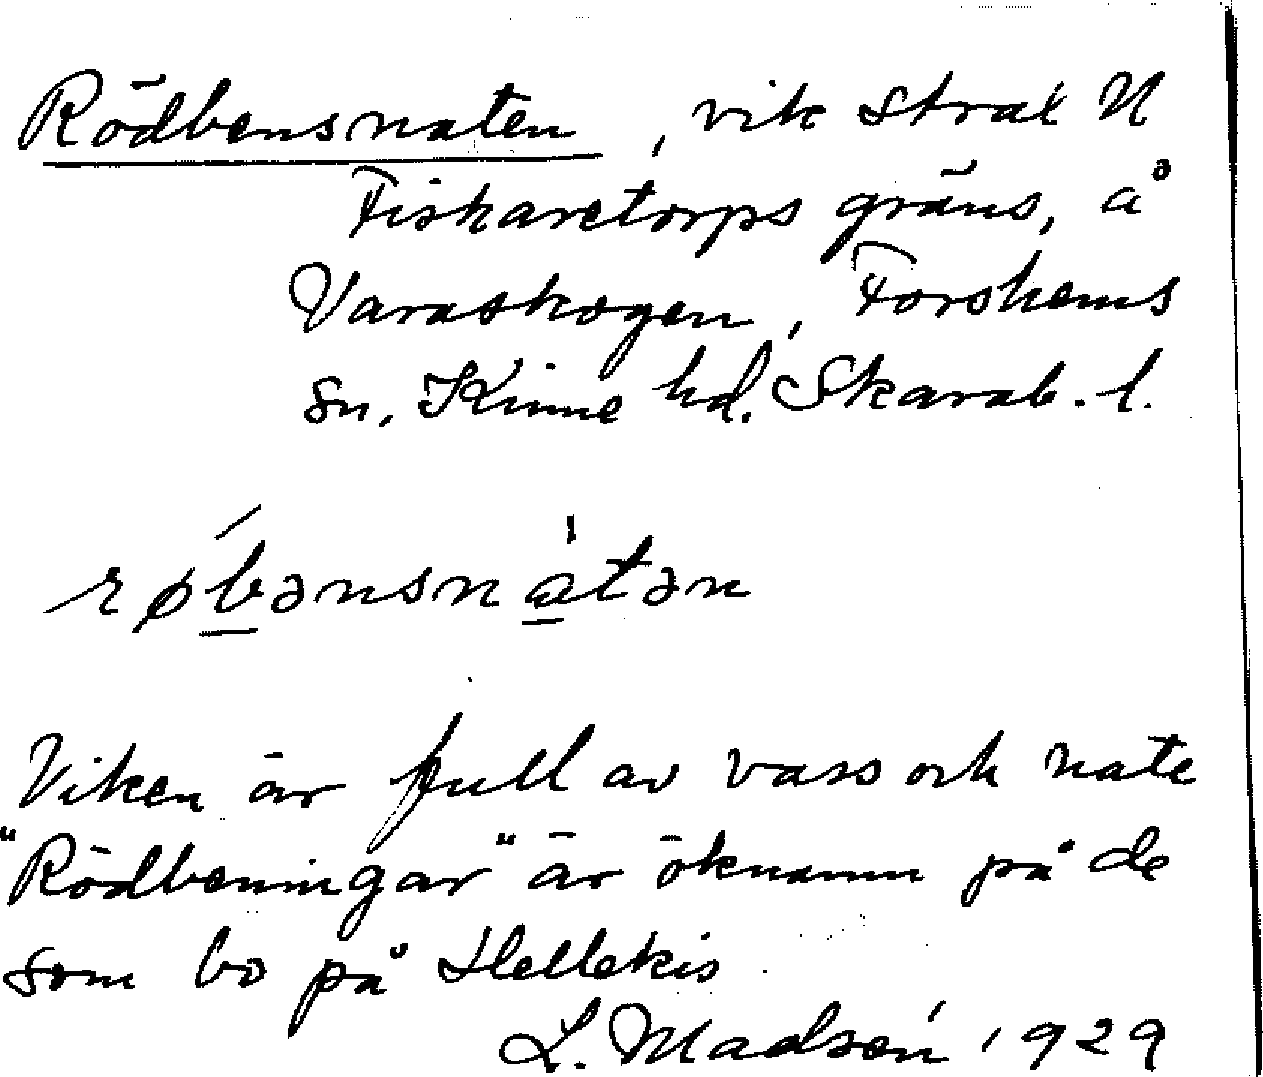 Rödbensnaten, vik strax N
Fiskaretorps gräns, å
Varaskogen, Forshems
sn. Kinne hd. Skarab. l.
røb́ənsnàtən
Viken är full av vass och nate
"Rödbeningar" är öknamn på de
som bo på Hellekis
L. Madsén 1929